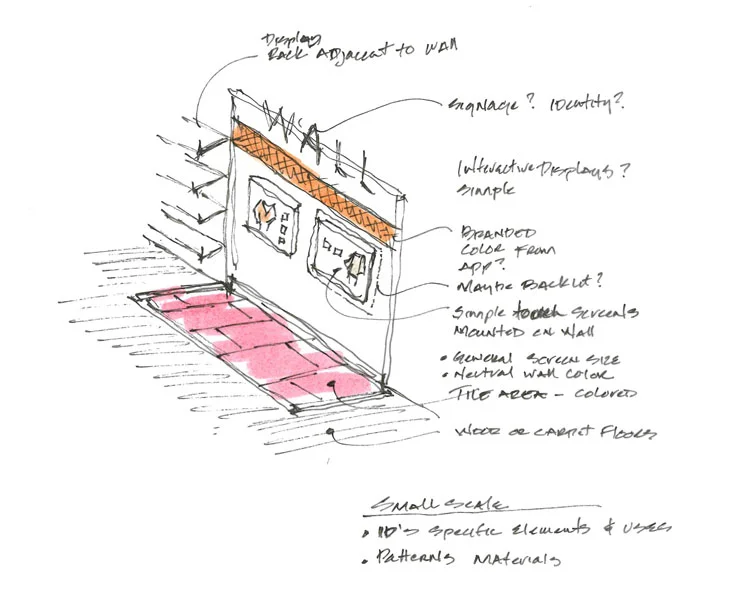 Display
Rack Adjacent to Wall
WALL
Signage? Identity?
Interactive Displays?
Simple
BRANDED
COLOR FROM
APP?
Maybe Backlit?
Simple touch Screens
MOUNTED ON WALL
• General Screen Size
• Neutral Wall Color
TILE AREA - COLORED
WOOD OR CARPET FLOORS
Small Scale
• ID's Specific Elements & Uses
• Patterns Materials